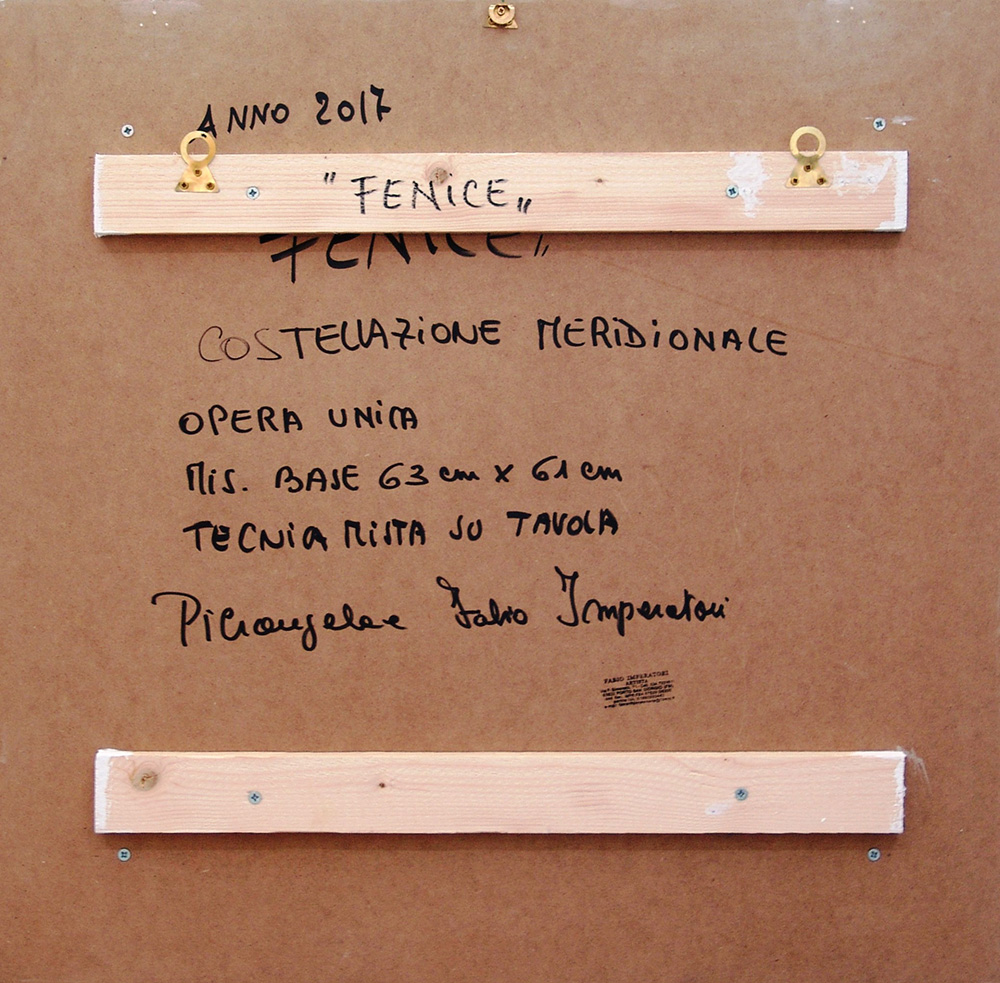 ANNO 2017
"FENiCE„
FENICE„
COSTELLAZiONE MERiDiONALE
OPERA UNiCA
MiS. BASE 63 cm X 61 cm
TECNiCA MiSTA SU TAVOLA
Pierangelo Fabio Imperatori
FABIO IMPERATORI
ARTISTA